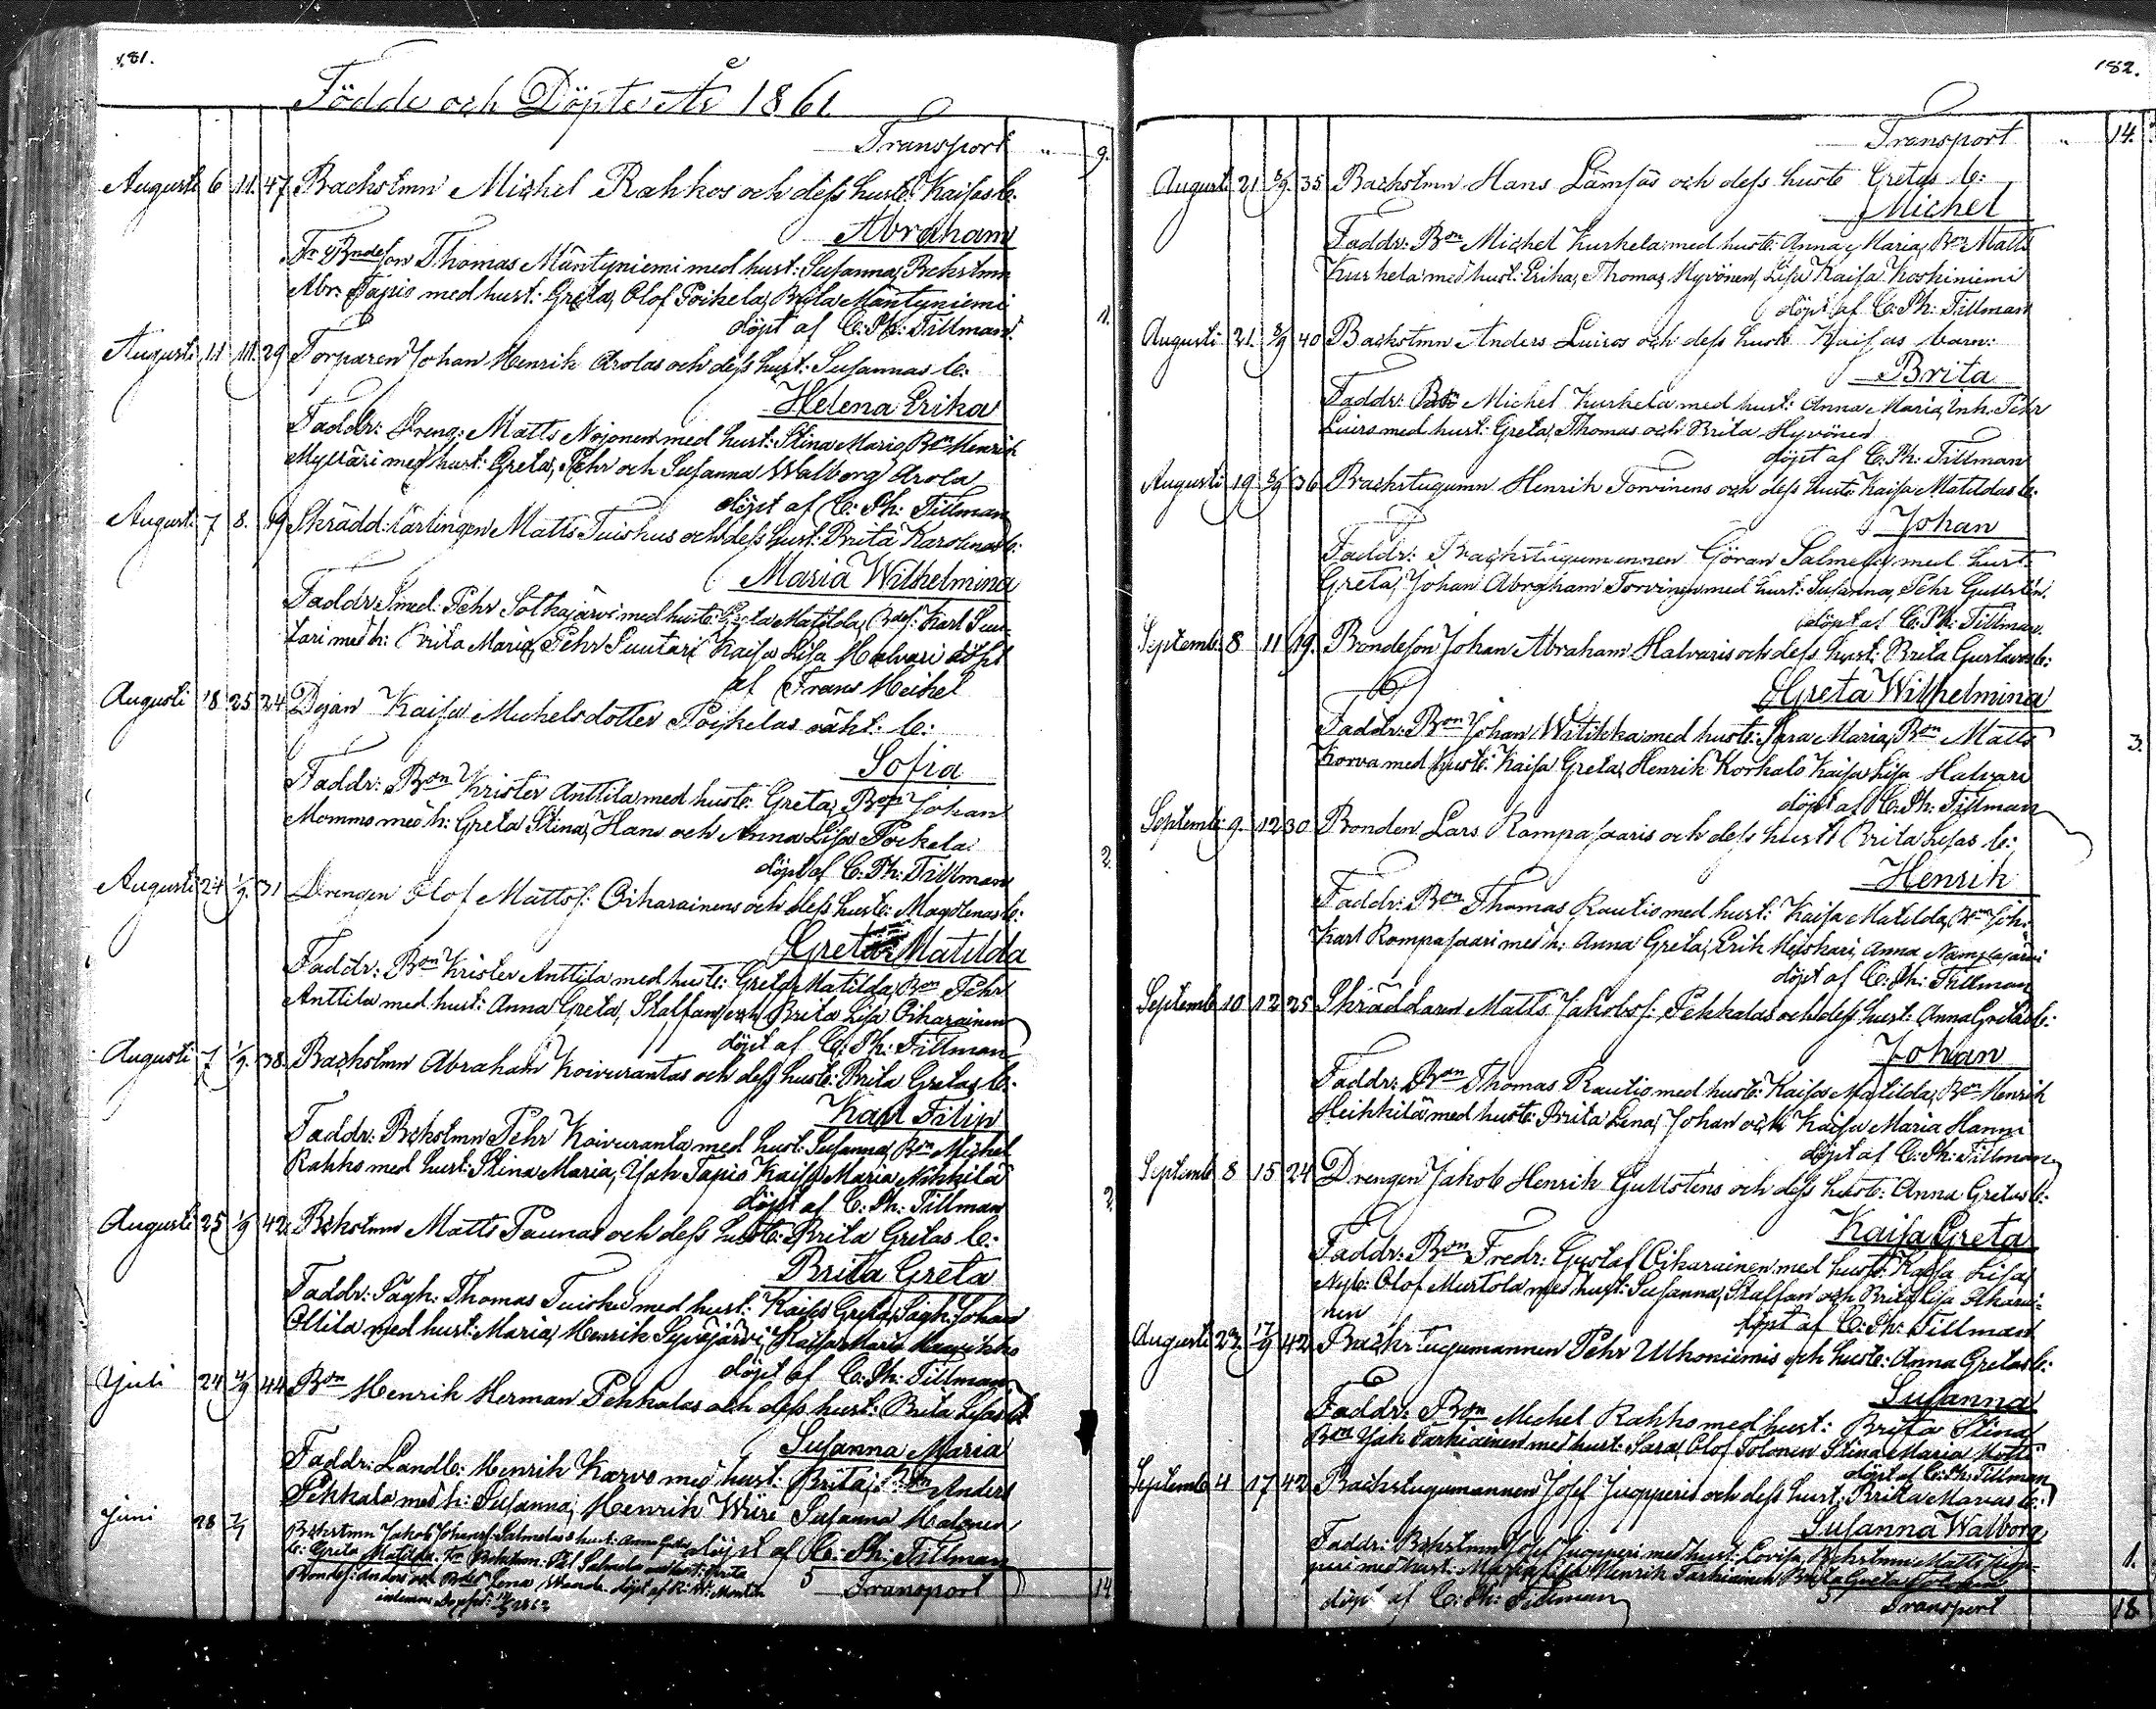 181.
Födde och Döpte År 1861.
Transport " 9.
Augusti 6 11. 47 Backstmn Michel Rahkos och dess hust: Kaisas b:
Abraham
Fr: Bndeson Thomas Mäntyniemi med hust: Susanna, Bckstmn
Abr. Tapio med hust: Greta, Olof Poikela, Brita Mäntyniemi
döpt af C: Ph: Tillman. 11.
Augusti 11 11. 29 Torparen Johan Henrik Arolas och dess hust: Susannas b:
Helena Erika
Faddr: Dreng: Matts Nojonen med hust: Stina Maria, Bon Henrik
Mylläri med hust: Greta, Pehr och Susanna Walborg Arola
döpt af C: Ph: Tillman
August. 7 8. 19 Skrädd: lärlingen Matts Tuiskus och dess hust: Brita Karolinas b:
Maria Wilhelmina
Faddr: Smed: Pehr Sotkajärvi med hust: Greta Matilda, Bdes: Karl Suu-
tari med h: Brita Maria, Pehr Suutari Kaisa Lisa Halvari döpt
af Frans Meihel
Augusti 18 25 24 Pigan Kaisa Michelsdotter Poikelas oäkt: b:
Sofia
Faddr: Bon Krister Anttila med hust: Greta, Bon Johan
Mommo med h: Greta Stina, Hans och Anna Lisa Poikela
döpt af C: Ph: Tillman 2.
Augusti 24 1/9. 31 Drengen Olof Mattss: Oikarainens och dess hust: Magdlenas b:
Greta Matilda
Faddr: Bon Krister Anttila med hust: Greta Matilda, Bon Pehr
Anttila med hust: Anna Greta, Staffan och Brita Lisa Oikarainen
döpt af C: Ph: Tillman
Augusti 7 1/9. 38. Backstmn Abraham Koivurantas och dess hust: Brita Gretas b:
Karl Filip
Faddr: Bckstmn Pehr Koivuranta med hust: Susanna, Bon Michel
Rahko med hust: Stina Maria, Jak Tapio Kaisa Maria Nikkilä
döpt af C: Ph: Tillman 2.
Augusti 25 1/9 42. Bckstmn Matts Paunas och dess hust: Brita Gretas b:
Brita Greta
Faddr: Sågh: Thomas Tuisku med hust: Kaisa Greta, Sågh: Johan
Ollila med hust: Maria, Henrik Syväjärvi, Kaisa Maria
döpt af C: Ph: Tillman
Juli 24 4/9 44 Bon Henrik Herman Pekkalas och dess hust: Brita Lisas b:
Susanna Maria
Faddr: Landb: Henrik Karvo med hust: Brita, Bon Anders
Pekkala med h: Susanna, Henrik Wiiri Susanna Halonen
döpt af C: Ph: Tillman
Juni 28 7/7 Bckstmn Jakob Johanss: Salmelas hust: Anna Gretas
b: Greta Matilda. Salmela med hust: Brita
Bondes: Anders och Lena döpt af
Transport 14

182.
Transport " 14.
August 21 8/9. 35 Backstmn Hans Lämsäs och dess hust Gretas b:
Michel
Faddr: Bon Michel Kurkela med hust: Anna Maria, Bon Matts
Kurkela med hust: Erika, Thomas Hyvönen, Lisa Kaisa Koskiniemi
döpt af C: Ph: Tillman
Augusti 21. 8/9 40 Backstmn Anders Luiros och dess hust Kaisas barn:
Brita
Faddr: Bon Michel Kurkela med hust: Anna Maria, Inh. Pehr
Luiro med hust: Greta, Thomas och Brita Hyvönen
döpt af C. Ph: Tillman
Augusti 19 8/9 36 Backstugumn Henrik Torvinens och dess hust: Kaisa Matildas b:
Johan
Faddr: Backstugumannen Göran Salmela med hust:
Greta, Johan Abraham Torvinen med hust: Susanna, Pehr Gullsten.
döpt af C: Ph: Tillman.
Septemb: 8 11 19. Bondeson Johan Abraham Halvaris och dess hust: Brita Gustavas b:
Greta Wilhelmina
Faddr: Bon Johan Witikka med hust: Sara Maria, Bon Matts
Korva med hust: Kaisa Greta, Henrik Korkalo Kaisa Lisa Halvari
döpt af C: Ph: Tillman 3.
Septemb: 9. 12 30 Bonden Lars Rompasaaris och dess hust Brita Lisas b:
Henrik
Faddr: Bon Thomas Rautio med hust: Kaisa Matilda, Bon Joh:
Karl Rompasaari med h: Anna Greta, Erik Heiskari, Anna Nampajärvi
döpt af C: Ph: Tillman
Septemb 10 12 25 Skräddaren Matts Jakobss: Pekkalas och dess hust: Anna Gretas b:
Johan
Faddr: Bon Thomas Rautio med hust: Kaisa Matilda, Bon Henrik
Heikkilä med hust: Brita Lena, Johan och Kaisa Maria Hanni
döpt af C: Ph: Tillman
Septemb 8 15 24 Drengen Jakob Henrik Gullstens och dess hust: Anna Gretas b:
Kaisa Greta
Faddr: Bon Fredr: Gustaf Oikarainen med hust: Kaisa Lisa,
Nyb: Olof Murtola med hust: Susanna, Staffan och Brita Lisa Oikarai-
nen döpt af C: Ph: Tillman
Augusti 23. 17/9 42 Backstugumannen Pehr Ulkoniemis och hust: Anna Gretas b:
Susanna
Faddr: Bon Michel Rahko med hust: Brita Stina,
Bon Jak Tarkiainen med hust: Sara, Olof Tolonen Stina Maria
döpt af C: Ph: Tillman
Septemb 4 17 42 Backstugumannen Josef Juopperis och dess hust: Brita Marias b:
Susanna Walborg
Faddr: Bckstmn Josef Juopperi med hust: Lovisa, Bckstmn Matts Juop-
peri med hust: Maria Lisa Henrik Tarkiainen Brita Greta 1.
döpt af C: Ph: Tillman Transport 18